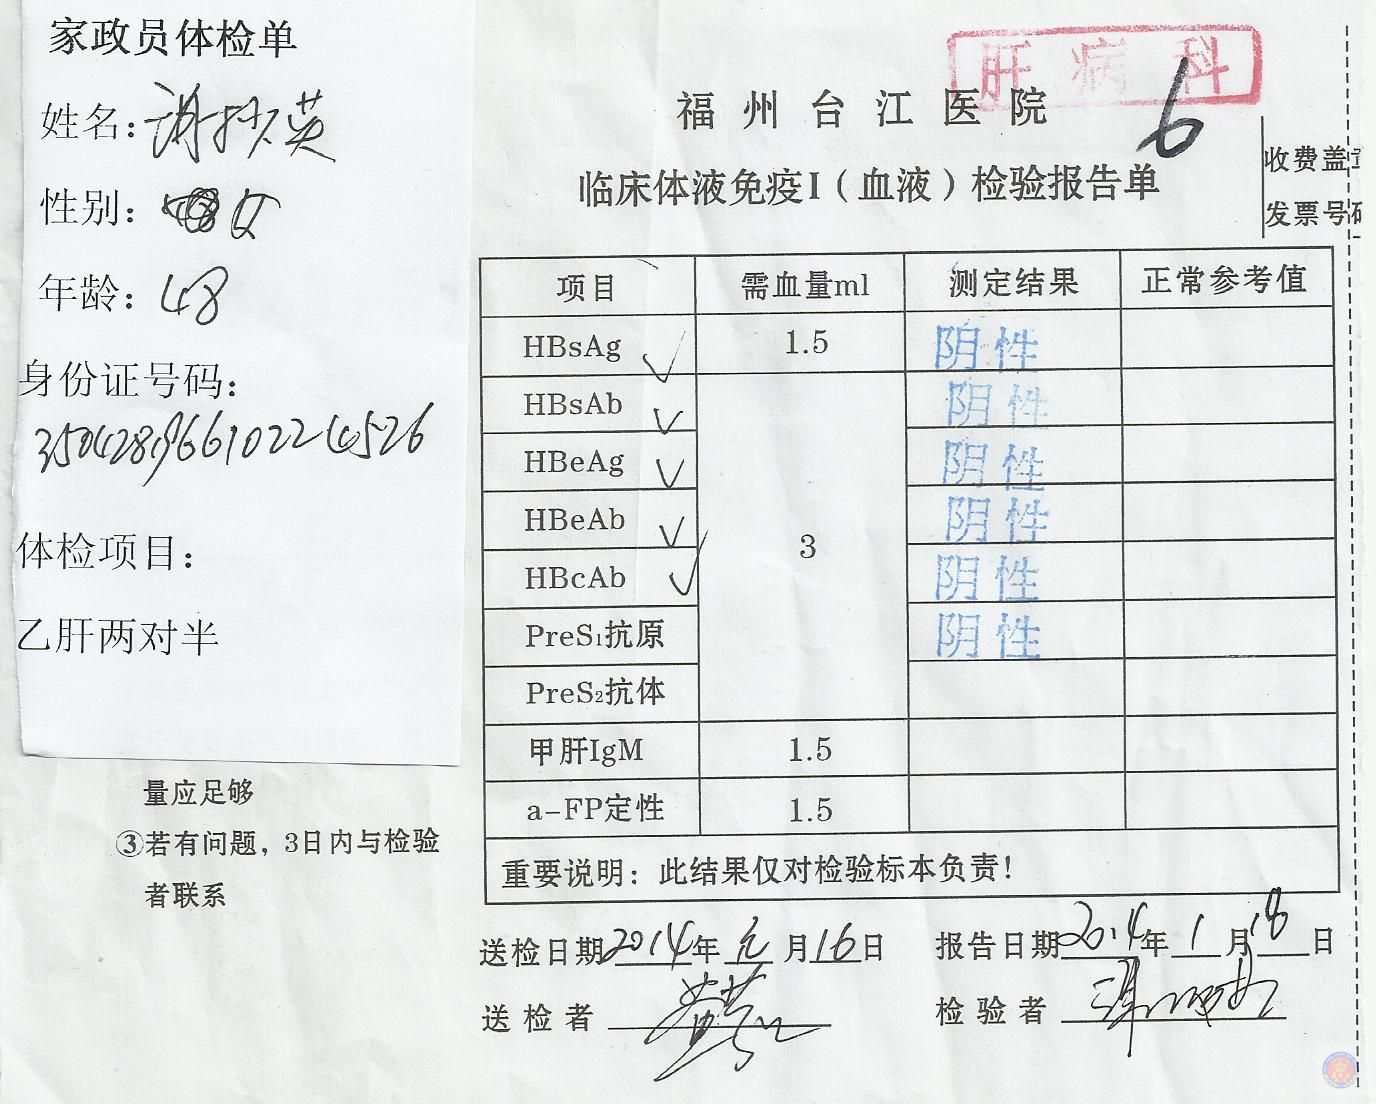 家政员体检单
姓名:谢 英
性别: 女
年龄:48
身份证号码:
350428196610224526
体检项目:
乙肝两对半
量应足够
③若有问题,3日内与检验
者联系
肝病科
福州台江医院
6
临床体液免疫I(血液)检验报告单
收费盖
发票号码
项目 需血量ml 测定结果 正常参考值
HBsAg ✓ 1.5 阴性
HBsAb ✓ 阴性
HBeAg ✓ 阴性
HBeAb ✓ 3 阴性
HBcAb ✓ 阴性
PreS₁抗原 阴性
PreS₂抗体
甲肝IgM 1.5
a-FP定性 1.5
重要说明:此结果仅对检验标本负责!
送检日期2014年元月16日 报告日期2014年1月 日
送检者 检验者